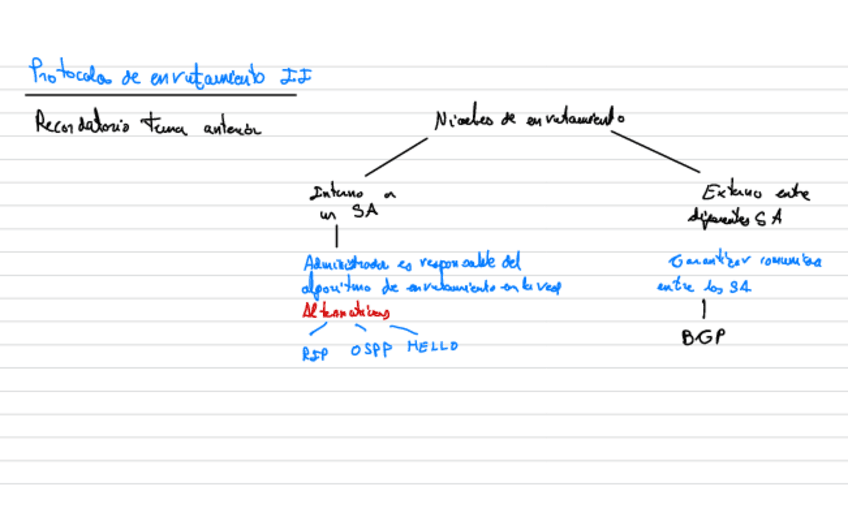 Protocolos de enrutamiento II
Recordatorio tema anterior
Niveles de enrutamiento
Interno a
un SA
Administrador es responsable del
algoritmo de enrutamiento en la red
Alternativas
RIP OSPP HELLO
Externo entre
diferentes SA
Garantizar comunica
entre los SA
BGP